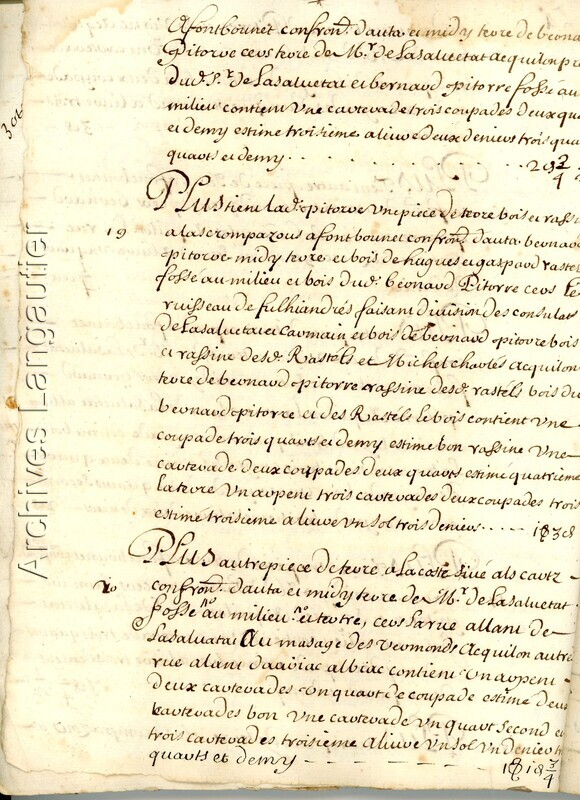 Afontbounet confron.t dauta et midy terre de bernad
Pitorre cers terre de M.r de Lasaluetat acquilon pre
dud. S.r de Lasaluetat et bernard pitorre fossé au
milieu contient Vne cartevade trois coupades deux qua
et demy estime troisieme aliure deux deniers trois qua
quarts et demy . . . . . . . . . . 2d 3/4
306
19
PLUS tient lad. pitorre Vn piece de terre bois et rassi
alascromparous afontbounet confron.t dauta bernard
pitorre midy terre et bois de hugues et gaspard rastel
fossé au milieu et bois dud. bernard Pitorre cers Le
ruisseau de fulhiandrés faisant diuision des consulats
de Lasaluetat et Carmain et bois de bernard pitorre bois
et rassine desd. Rastéls et Michel charlés Acquilon
terre de bernard pitorre rassine desd. rastéls bois du
bernard pitorre et des Rastéls Le bois contient vne
coupade trois quarts et demy estime bon rassine Vne
cartevade deux coupades deux quarts estimé quatrieme
La terre Vn arpent trois cartevades deux coupades trois
estimé troisieme aliure Vn sol trois deniers . . . . 1s 3d
20
PLUS autre piece de terre a La coste siué als cartz
confron.t dauta et midy terre de M.r de Lasaluetat
fossé au milieu et tertre, cers La rue allant de
Lasaluetat Au masage des vermonds Acquilon autre
rue alant daaviac albiac contient Vn arpent
deux cartevades Vn quart de coupade estime deux
cartevades bon Vne cartevade Vn quart Second et
trois cartevades troisieme aliure Vn sol Vn denier t
quarts et demy
Archives Langautier